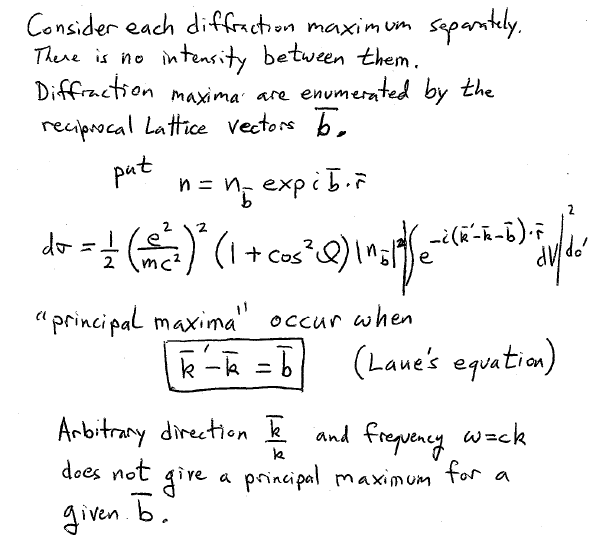 Consider each diffraction maximum separately.
There is no intensity between them.
Diffraction maxima are enumerated by the
reciprocal Lattice vectors b̄.
put n = n_b̄ exp i b̄·r̄
dσ = 1/2 (e²/mc²)² (1 + cos²ϑ) |n_b̄|² |∫ e^{-i(k̄'-k̄-b̄)·r̄} dV|² do'
"principal maxima" occur when
k̄' - k̄ = b̄ (Laue's equation)
Arbitrary direction k̄/k and frequency ω=ck
does not give a principal maximum for a
given b̄.